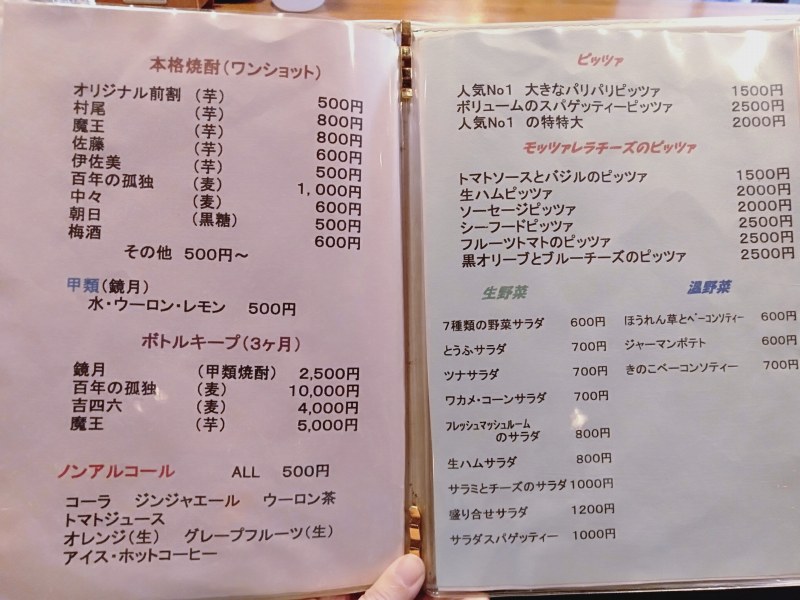 本格焼酎(ワンショット)
オリジナル前割 (芋) 500円
村尾 (芋) 800円
魔王 (芋) 800円
佐藤 (芋) 600円
伊佐美 (芋) 500円
百年の孤独 (麦) 1,000円
中々 (麦) 600円
朝日 (黒糖) 500円
梅酒 600円
その他 500円~
甲類(鏡月)
水・ウーロン・レモン 500円
ボトルキープ(3ヶ月)
鏡月 (甲類焼酎) 2,500円
百年の孤独 (麦) 10,000円
吉四六 (麦) 4,000円
魔王 (芋) 5,000円
ノンアルコール ALL 500円
コーラ ジンジャエール ウーロン茶
トマトジュース
オレンジ(生) グレープフルーツ(生)
アイス・ホットコーヒー
ピッツァ
人気No1 大きなパリパリピッツァ 1500円
ボリュームのスパゲッティーピッツァ 2500円
人気No1 の特特大 2000円
モッツァレラチーズのピッツァ
トマトソースとバジルのピッツァ 1500円
生ハムピッツァ 2000円
ソーセージピッツァ 2000円
シーフードピッツァ 2500円
フルーツトマトのピッツァ 2500円
黒オリーブとブルーチーズのピッツァ 2500円
生野菜
7種類の野菜サラダ 600円
とうふサラダ 700円
ツナサラダ 700円
ワカメ・コーンサラダ 700円
フレッシュマッシュルーム
のサラダ 800円
生ハムサラダ 800円
サラミとチーズのサラダ 1000円
盛り合せサラダ 1200円
サラダスパゲッティー 1000円
温野菜
ほうれん草とベーコンソティー 600円
ジャーマンポテト 600円
きのこベーコンソティー 700円